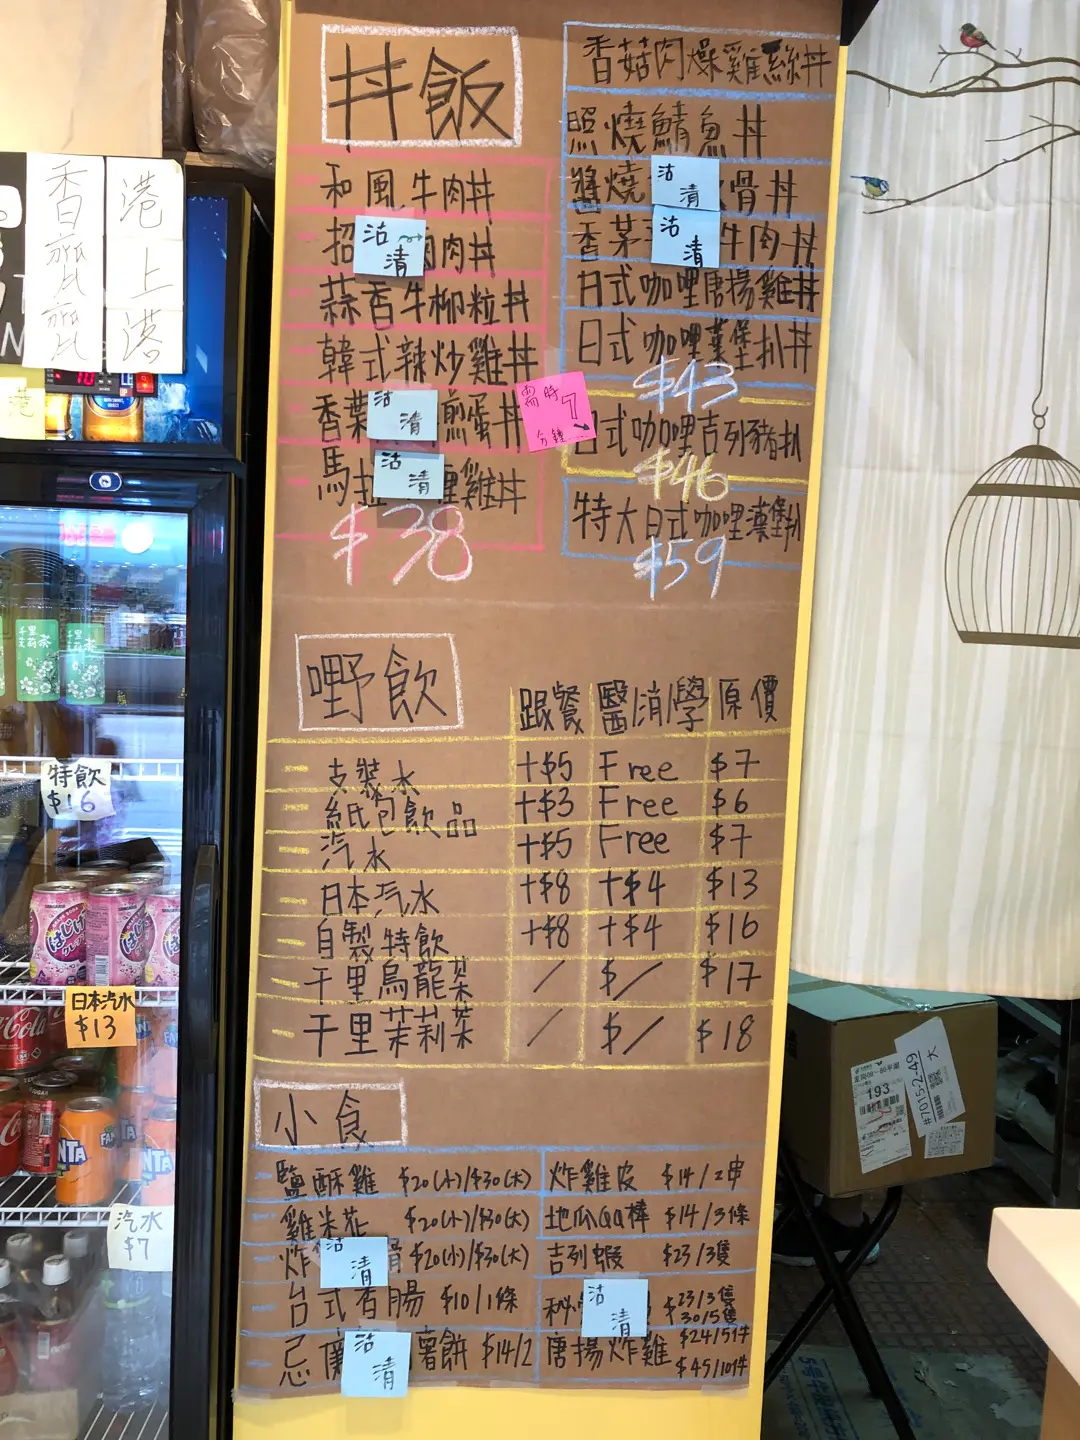 丼飯
和風牛肉丼
招
沽清
肉丼
蒜香牛柳粒丼
韓式辣炒雞丼
香葉
沽清
煎蛋丼
馬拉
沽清
哩雞丼
$38
香菇肉燥雞絲丼
照燒鯖魚丼
醬燒
沽清
骨丼
香茅
沽清
牛肉丼
日式咖哩唐揚雞丼
日式咖哩漢堡扒丼
$43
需時7分鐘
日式咖哩吉列豬扒
$46
特大日式咖哩漢堡扒
$59
嘢飲
跟餐 醫/消/學 原價
支裝水 +$5 Free $7
紙包飲品 +$3 Free $6
汽水 +$5 Free $7
日本汽水 +$8 +$4 $13
自製特飲 +$8 +$4 $16
千里烏龍茶 / $/ $17
千里茉莉茶 / $/ $18
小食
鹽酥雞 $20(小)/$30(大)
雞米花 $20(小)/$30(大)
炸
沽清
骨 $20(小)/$30(大)
台式香腸 $10/1條
忌廉
沽清
薯餅 $14/2
炸雞皮 $14/2串
地瓜QQ棒 $14/3條
吉列蝦 $23/3隻
秘
沽清
$23/3隻
$30/5隻
唐揚炸雞 $24/5件
$45/10件
港上港
香
特飲
$16
千里茉莉茶
日本汽水
$13
汽水
$7
Coca-Cola
FANTA
はじけ
193
#7015-2-49
大